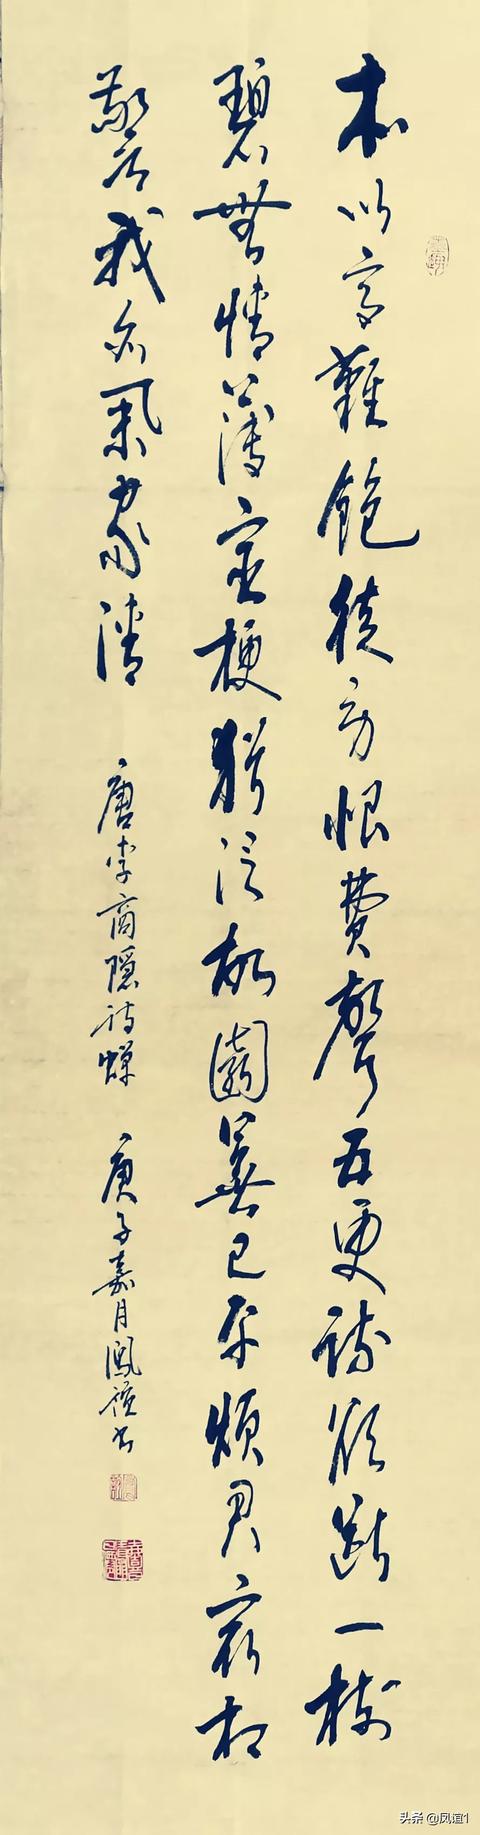 本以高難飽徒勞恨費聲五更疏欲斷一樹
碧無情薄宦梗猶泛故園蕪已平煩君最相
警我亦舉家清 唐李商隱詩蟬 庚子嘉月鳳誼書
头条 @凤谊1